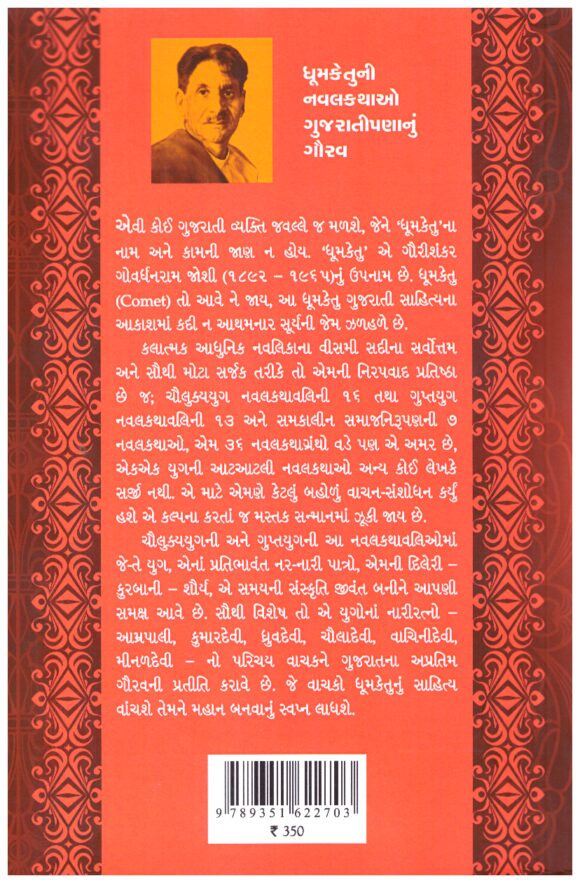 ધૂમકેતુની
નવલકથાઓ
ગુજરાતીપણાનું
ગૌરવ
એવી કોઈ ગુજરાતી વ્યક્તિ જવલ્લે જ મળશે, જેને ‘ધૂમકેતુ’ના
નામ અને કામની જાણ ન હોય. ‘ધૂમકેતુ’ એ ગૌરીશંકર
ગોવર્ધનરામ જોશી (૧૮૯૨ – ૧૯૬૫)નું ઉપનામ છે. ધૂમકેતુ
(Comet) તો આવે ને જાય, આ ધૂમકેતુ ગુજરાતી સાહિત્યના
આકાશમાં કદી ન આથમનાર સૂર્યની જેમ ઝળહળે છે.
કલાત્મક આધુનિક નવલિકાના વીસમી સદીના સર્વોત્તમ
અને સૌથી મોટા સર્જક તરીકે તો એમની નિરપવાદ પ્રતિષ્ઠા
છે જ; ચૌલુક્યયુગ નવલકથાવલિની ૧૬ તથા ગુપ્તયુગ
નવલકથાવલિની ૧૩ અને સમકાલીન સમાજનિરૂપણની ૭
નવલકથાઓ, એમ ૩૬ નવલકથાગ્રંથો વડે પણ એ અમર છે,
એકએક યુગની આટઆટલી નવલકથાઓ અન્ય કોઈ લેખકે
સર્જી નથી. એ માટે એમણે કેટલું બહોળું વાચન-સંશોધન કર્યું
હશે એ કલ્પના કરતાં જ મસ્તક સન્માનમાં ઝૂકી જાય છે.
ચૌલુક્યયુગની અને ગુપ્તયુગની આ નવલકથાવલિઓમાં
જે-તે યુગ, એનાં પ્રતિભાવંત નર-નારી પાત્રો, એમની દિલેરી –
કુરબાની – શૌર્ય, એ સમયની સંસ્કૃતિ જીવંત બનીને આપણી
સમક્ષ આવે છે. સૌથી વિશેષ તો એ યુગોનાં નારીરત્નો –
આમ્રપાલી, કુમારદેવી, ધ્રુવદેવી, ચૌલાદેવી, વાચિનીદેવી,
મીનળદેવી – નો પરિચય વાચકને ગુજરાતના અપ્રતિમ
ગૌરવની પ્રતીતિ કરાવે છે. જે વાચકો ધૂમકેતુનું સાહિત્ય
વાંચશે તેમને મહાન બનવાનું સ્વપ્ન લાધશે.
9 789351 622703
₹ 350